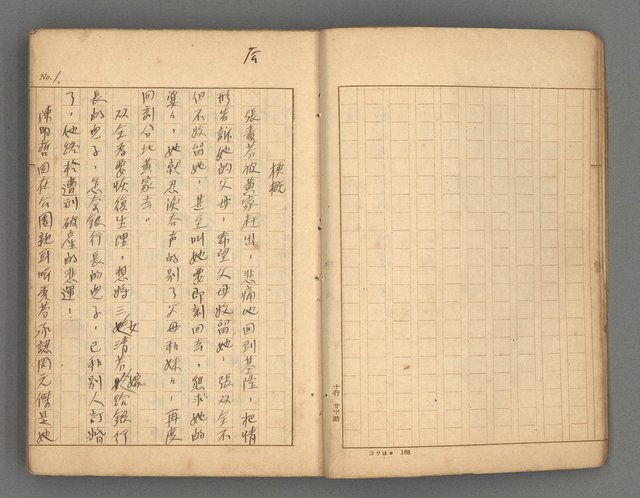 No. 1.
梗概
張素芬被黃家赶出，悲痛地回到基隆，把情
形告訴她的父母，希望父母收留她，張双全不
但不收留她，甚至叫她要即刻回去，懇求她的
婆々，她就忍淚吞声的別了父母和妹々，再度
回到台北黃家去。
双全者要恢復生理，想將三女清芬嫁給銀行
長的兒子，怎奈銀行長的兒子，已和別人訂婚
了，他終於遭到破產的悲運！
陳明哲因在公園親耳听素芬承認周元傑是她
コクヨ 168